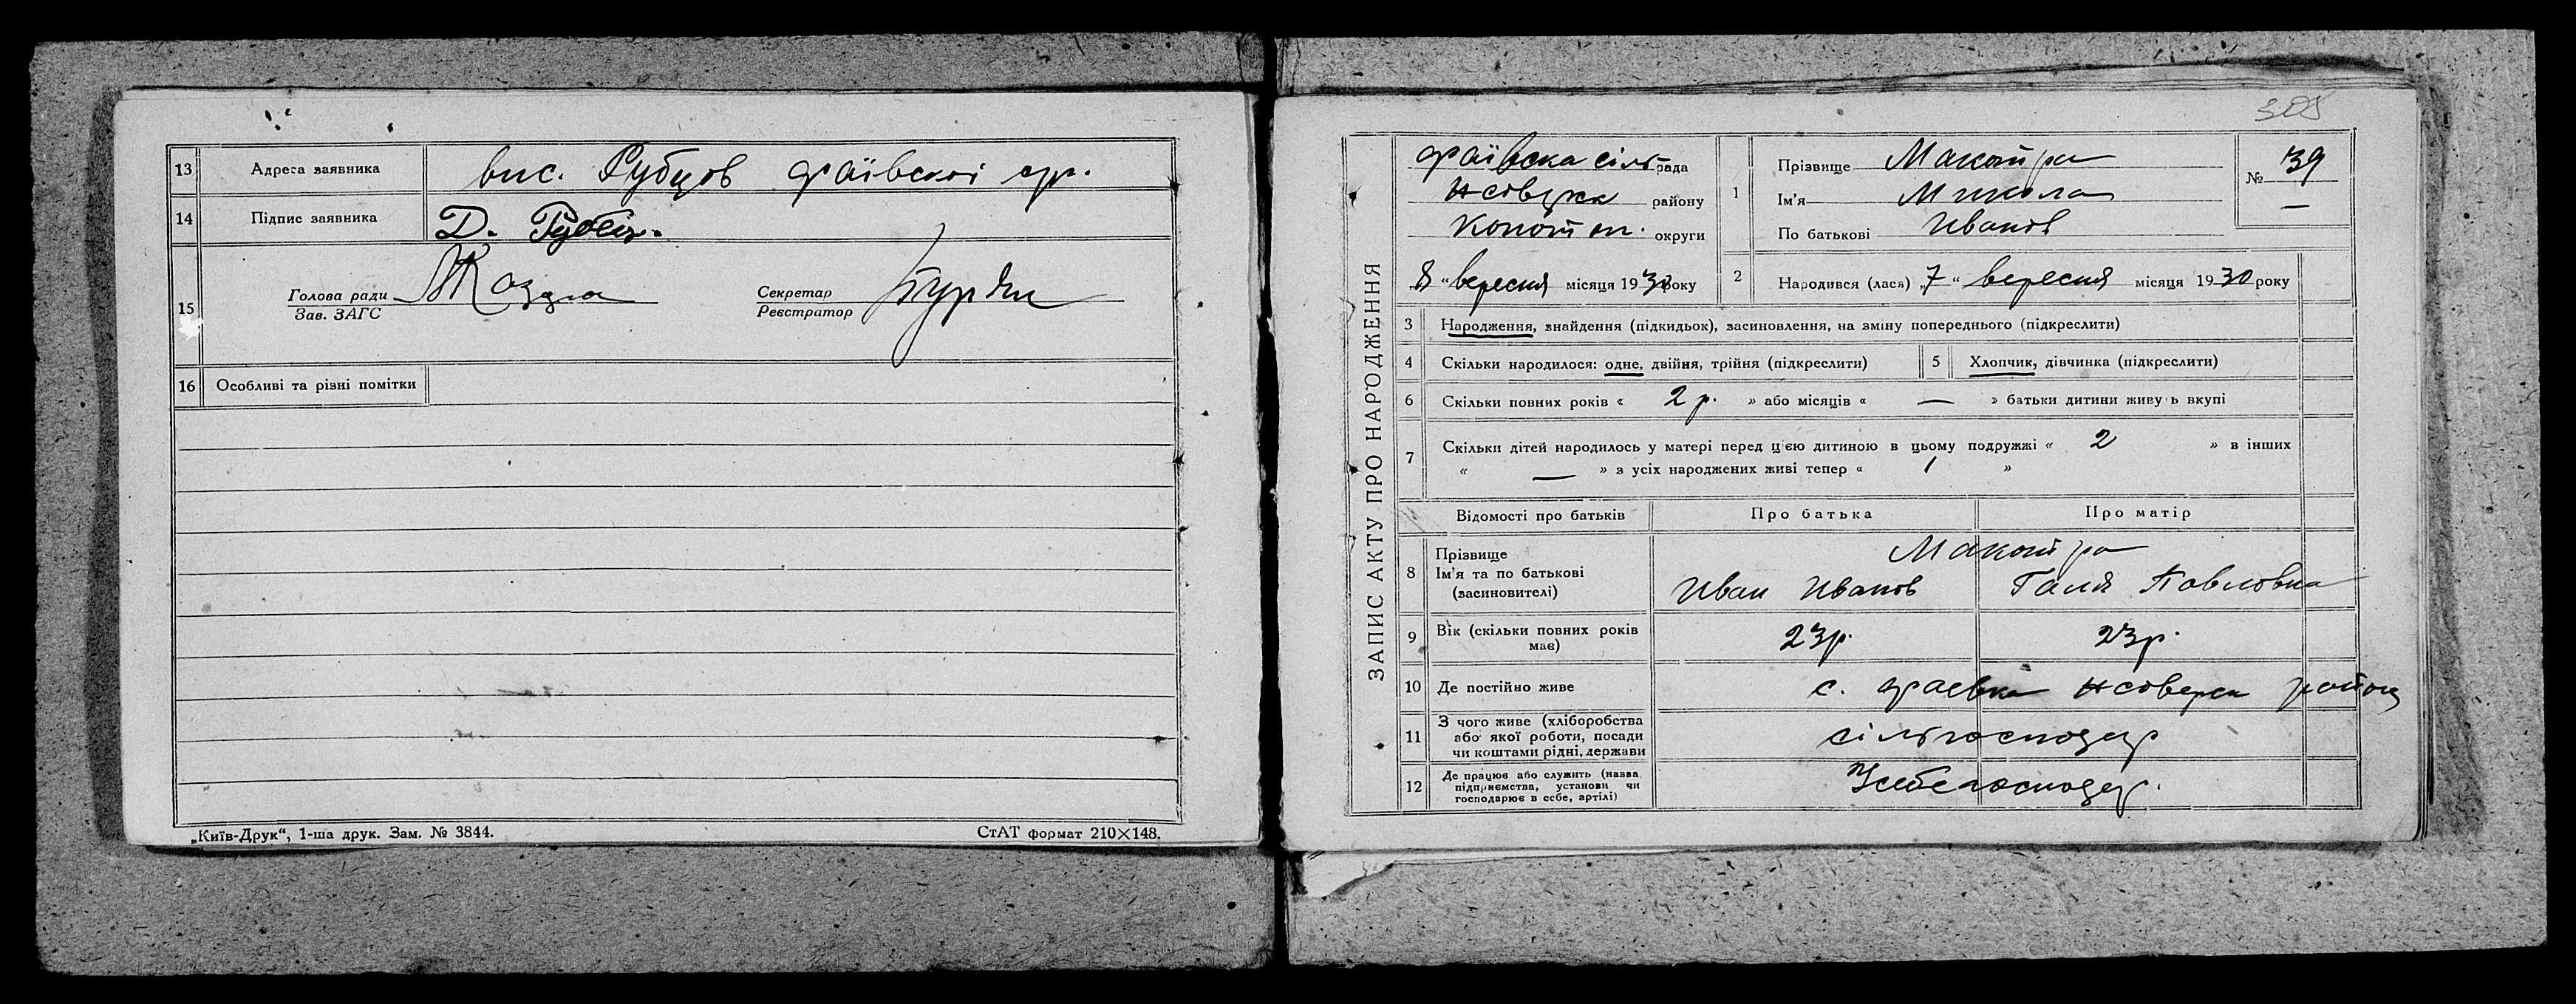 13 Адреса заявника вис. Рубцов фаївскої с/р.
14 Підпис заявника Д. Рубец.
15 Голова ради
Зав. ЗАГС
Секретар
Реєстратор
16 Особливі та різні помітки
„Київ-Друк“, 1-ша друк. Зам. № 3844.
СтАТ формат 210×148.
305
ЗАПИС АКТУ ПРО НАРОДЖЕННЯ
фаївска сільрада
району
Коноти. округи
„8“ вересня місяця 1930 року
1 Прізвище Макотра
Ім'я Микола
По батькові Иванов
№ 39
—
2 Народився (лася) „7“ вересня місяця 1930 року
3 Народження, знайдення (підкидьок), засиновлення, на зміну попереднього (підкреслити)
4 Скільки народилося: одне, двійня, трійня (підкреслити)
5 Хлопчик, дівчинка (підкреслити)
6 Скільки повних років « 2 р. » або місяців « — » батьки дитини живуть вкупі
7 Скільки дітей народилось у матері перед цією дитиною в цьому подружжі « 2 » в інших
« — » з усіх народжених живі тепер « 1 »
Відомості про батьків Про батька Про матір
8 Прізвище Макотра
Ім'я та по батькові
(засиновителі) Иван Иванов Галя Павловна
9 Вік (скільки повних років
має) 23р. 23р.
10 Де постійно живе с. фаевка район
11 З чого живе (хліборобства
або якої роботи, посади
чи коштами рідні, держави
сільгосподар
12 Де працює або служить (назва
підприємства, установи чи
господарює в себе, артілі)
Усебегосподар.